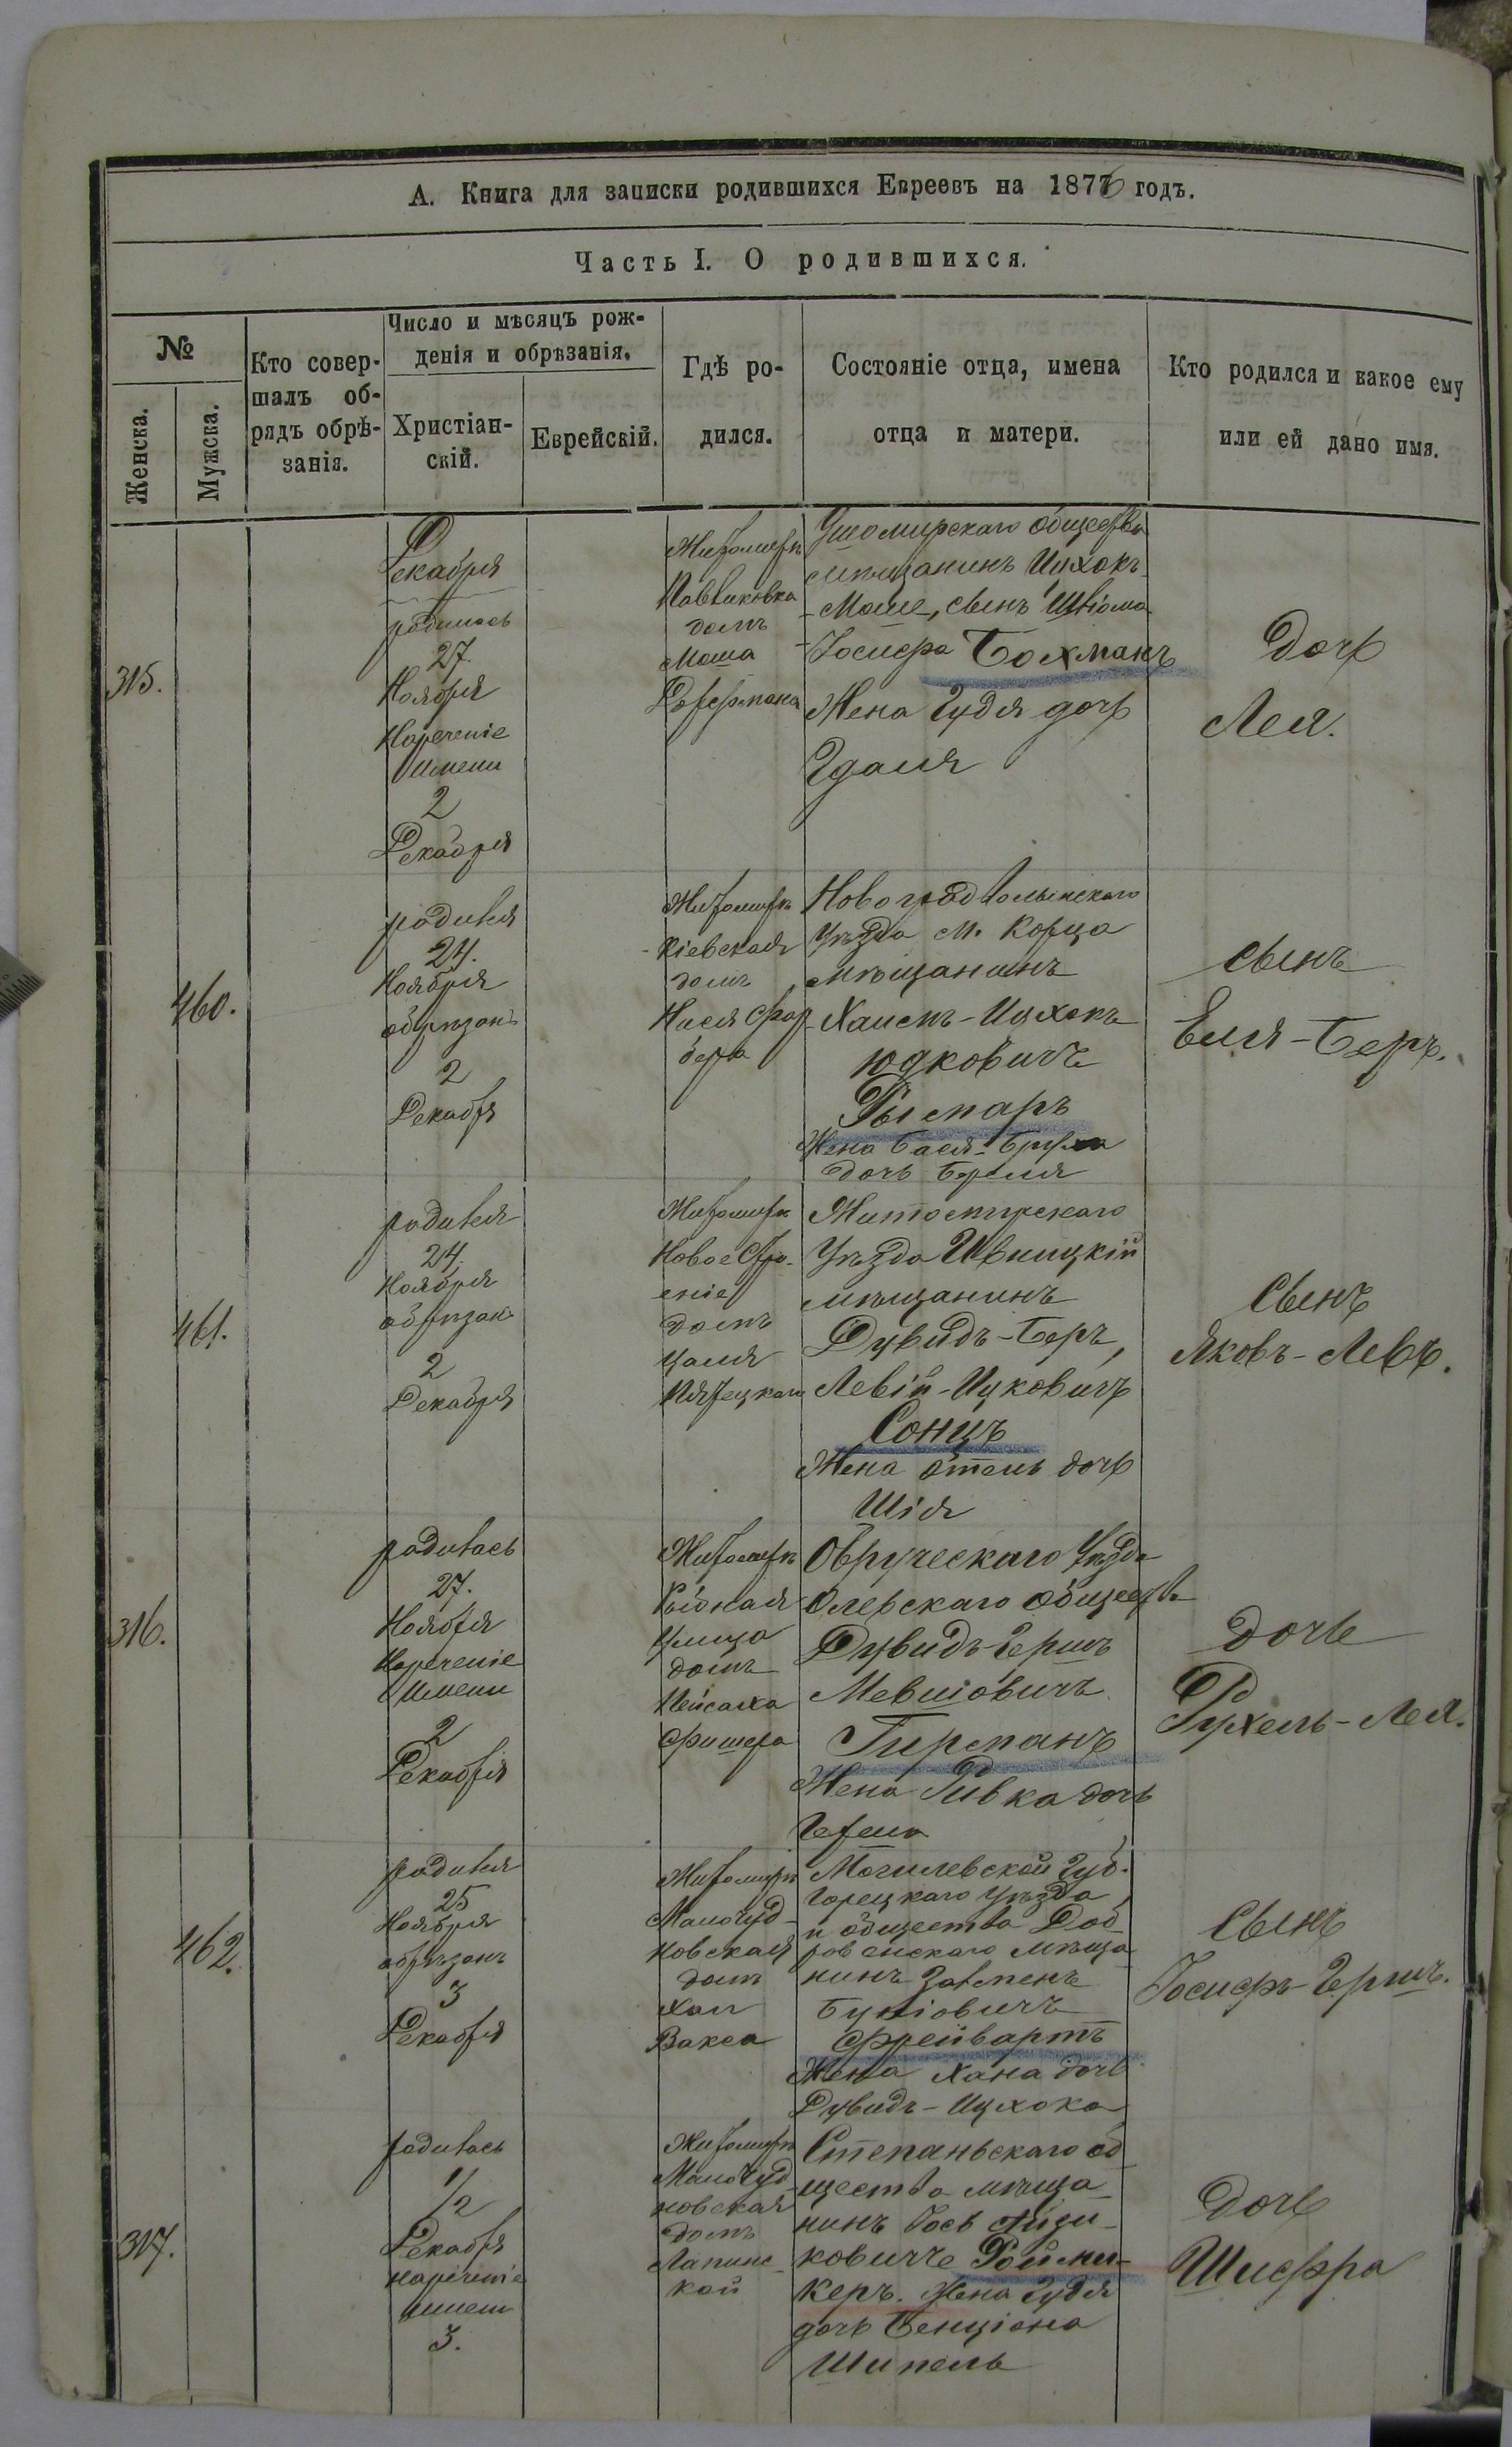 А. Книга для записки родившихся Евреевъ на 1876 годъ.
Часть I. О родившихся.
№
Женска.
Мужска.
Кто совер-
шалъ об-
рядъ обрѣ-
занія.
Число и мѣсяцъ рож-
денія и обрѣзанія.
Христіан-
скій.
Еврейскій.
Гдѣ ро-
дился.
Состояніе отца, имена
отца и матери.
Кто родился и какое ему
или ей дано имя.
315.
Декабря
родилась
27.
Ноября
Нареченіе
Имени
2
Декабря
Житомиръ
Павликовка
домъ
Моша
Ушомирскаго общества
мѣщанинъ Ицхокъ-
Моше, сынъ Шліома
Іосифа Бохманъ
Жена Гудя дочь
Гдаля
дочь
Лея.
460.
родился
24.
Ноября
обрѣзанъ
2
Декабря
Житомиръ
Кіевская
домъ
Новоградволынскаго
Уѣзда м. Корца
мѣщанинъ
Хаимъ-Ицхокъ
Юдковичъ
Рымаръ
Жена Бася-Бруха
дочь Береля
сынъ
Еля-Беръ.
461.
родился
24.
Ноября
обрѣзанъ
2
Декабря
Житомиръ
Новое Стро-
еніе
домъ
Цаля
Пятецкаго
Житомирскаго
Уѣзда Ивницкій
мѣщанинъ
Дувидъ-Беръ,
Левій-Ицковичъ
Сонцъ
Жена Этель дочь
Шія
Сынъ
Яковъ-Левъ.
316.
родилась
27.
Ноября
Нареченіе
Имени
2
Декабря
Житомиръ
Рыбная
Улица
домъ
Пейсаха
Фишера
Овруческаго Уѣзда
Олевскаго общества
Дувидъ-Гершъ
Мевшовичъ
Гирманъ
Жена Ривка дочь
дочь
Рухель-Лея.
462.
родился
25
Ноября
обрѣзанъ
3
Декабря
Житомиръ
Малочуд-
новская
домъ
Вакса
Могилевской Губ.
Горецкаго Уѣзда,
и общества Дob-
ровенскаго мѣща-
нинъ Залменъ
Фрейвартъ
Жена Хана дочь
Дувидъ-Ицхока
Сынъ
Іосифъ-Гершъ.
317.
родилась
1/2
Декабря
нареченіе
имени
3.
Житомиръ
Малочуд-
новская
домъ
Лапинс-
кой
Степаньскаго об-
щества мѣща-
нинъ Іось Айзи-
ковичъ Роймы-
керъ. Жена Гудя
дочь Бенціона
Шипель
дочь
Шифра